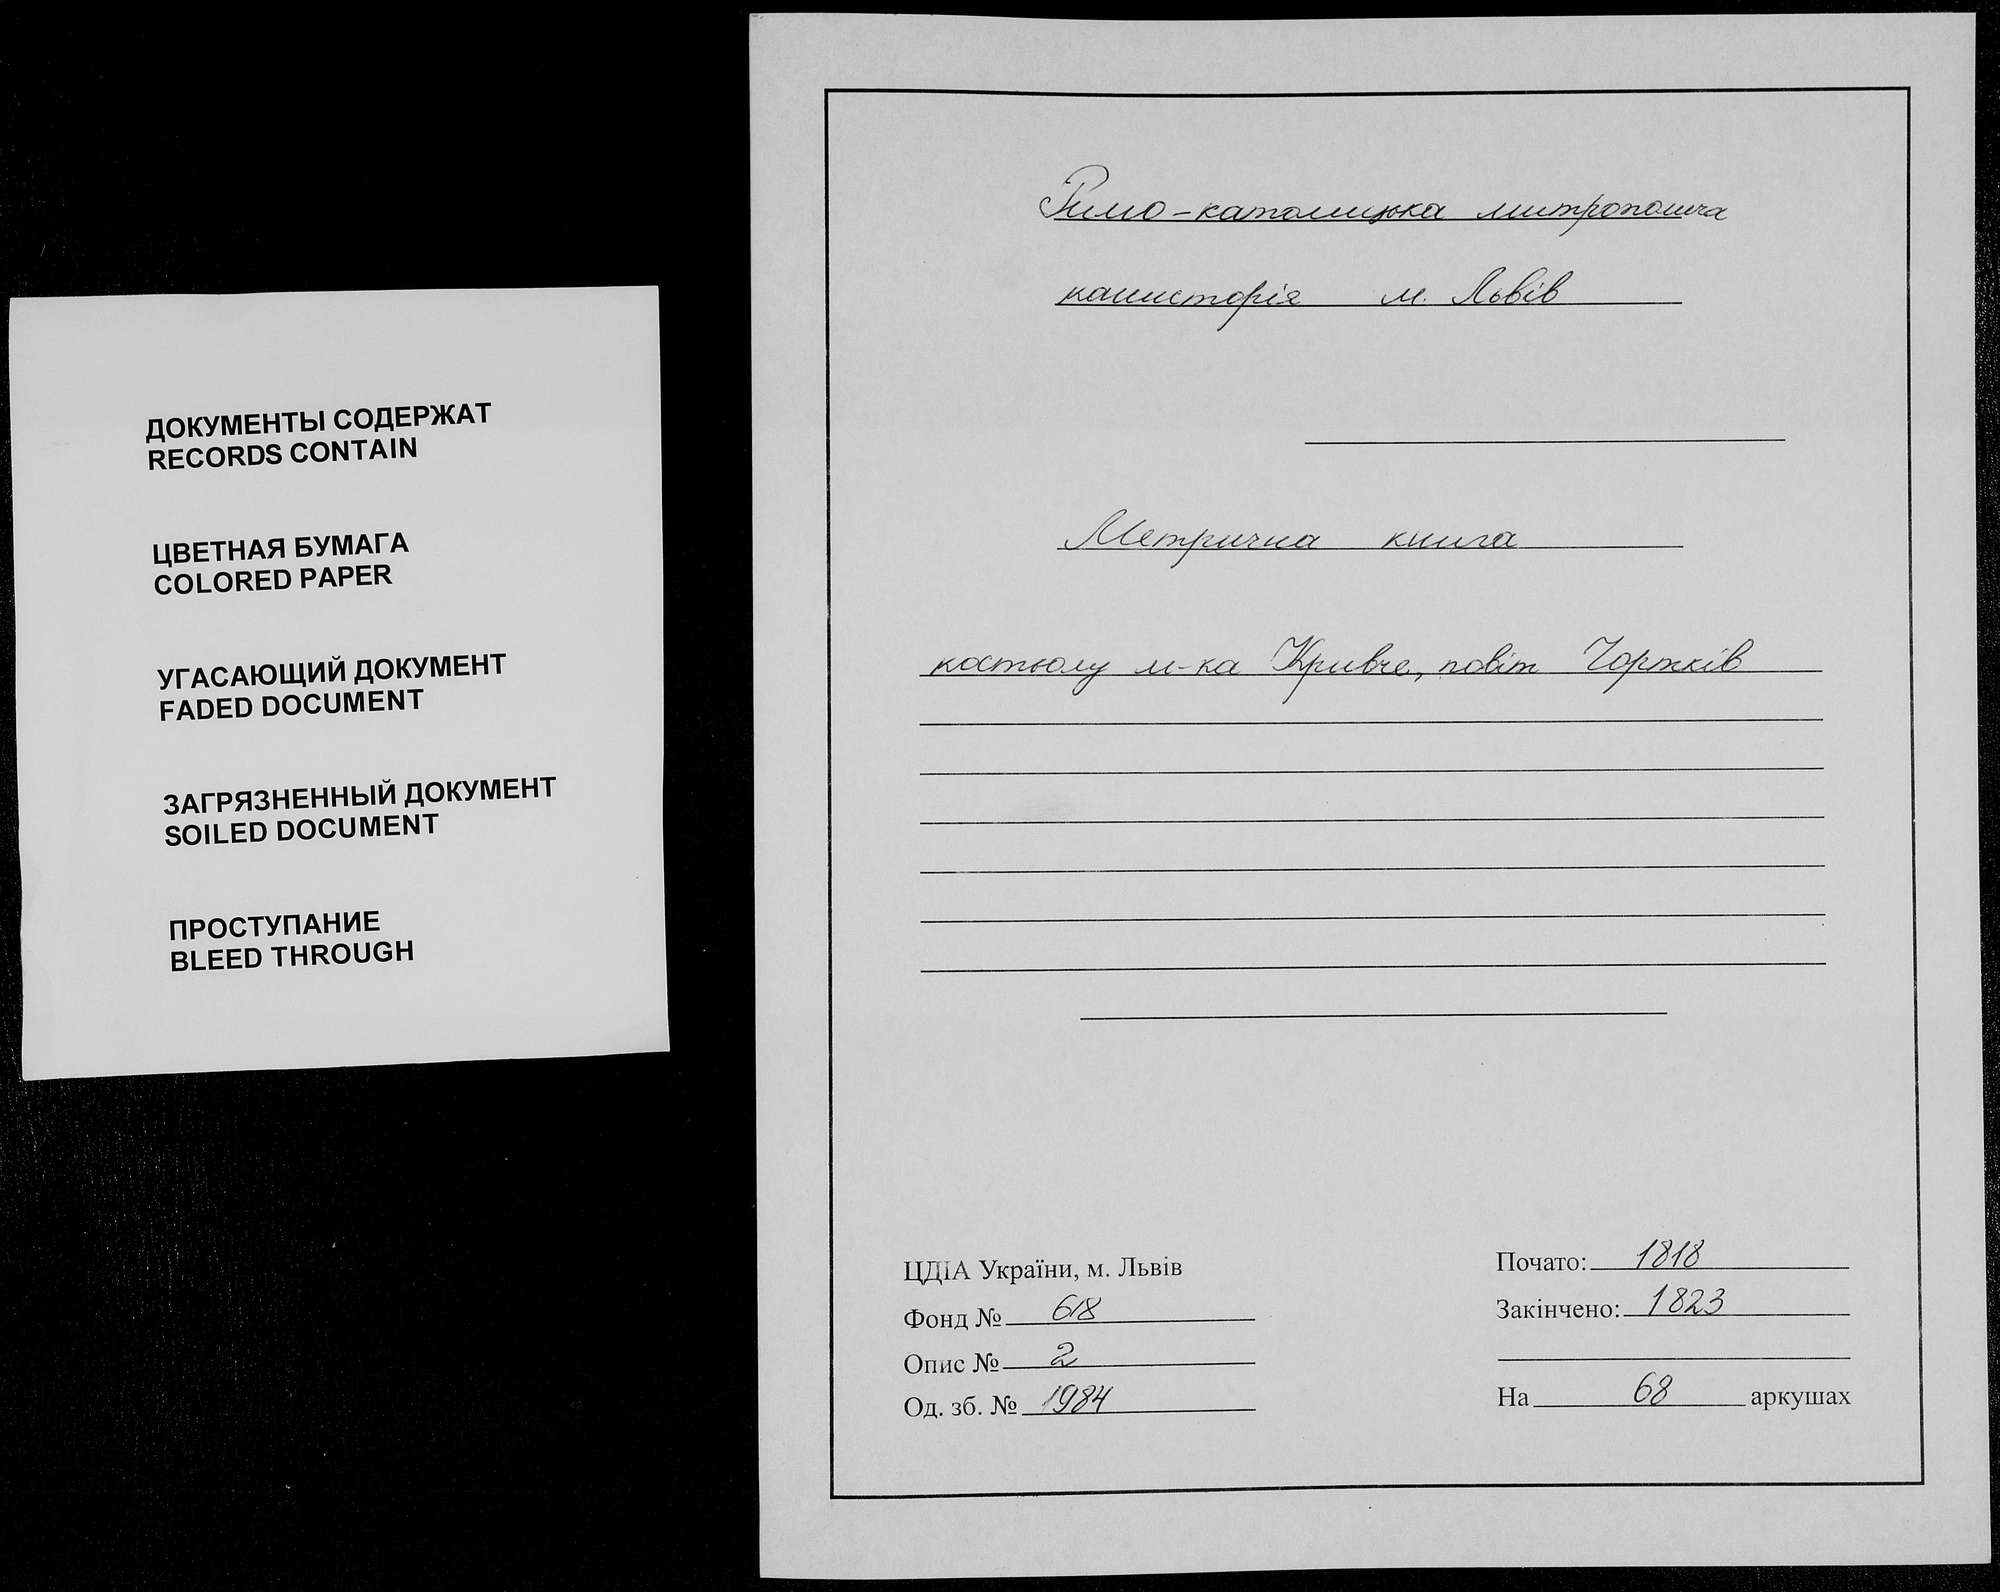 ДОКУМЕНТЫ СОДЕРЖАТ
RECORDS CONTAIN
ЦВЕТНАЯ БУМАГА
COLORED PAPER
УГАСАЮЩИЙ ДОКУМЕНТ
FADED DOCUMENT
ЗАГРЯЗНЕННЫЙ ДОКУМЕНТ
SOILED DOCUMENT
ПРОСТУПАНИЕ
BLEED THROUGH
Римо-католицька митрополича
консисторія м. Львів
Метрична книга
костьолу м-ка Кривче, повіт Чортків
ЦДІА України, м. Львів
Фонд № 618
Опис № 2
Од. зб. № 1984
Почато: 1818
Закінчено: 1823
На 68 аркушах